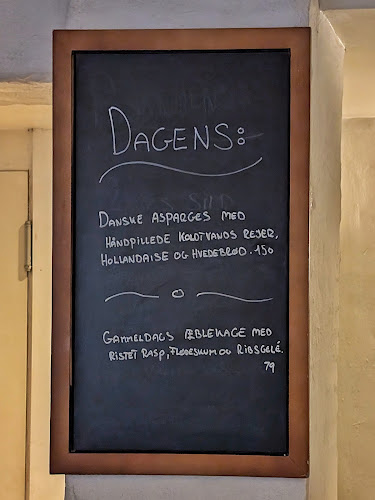 DAGENS:
DANSKE ASPARGES MED
HÅNDPILLEDE KOLDTVANDS REJER,
HOLLANDAISE OG HVEDEBRØD. 150
GAMMELDAGS ÆBLEKAGE MED
RISTET RASP, FLØDESKUM OG RIBSGELÉ.
79